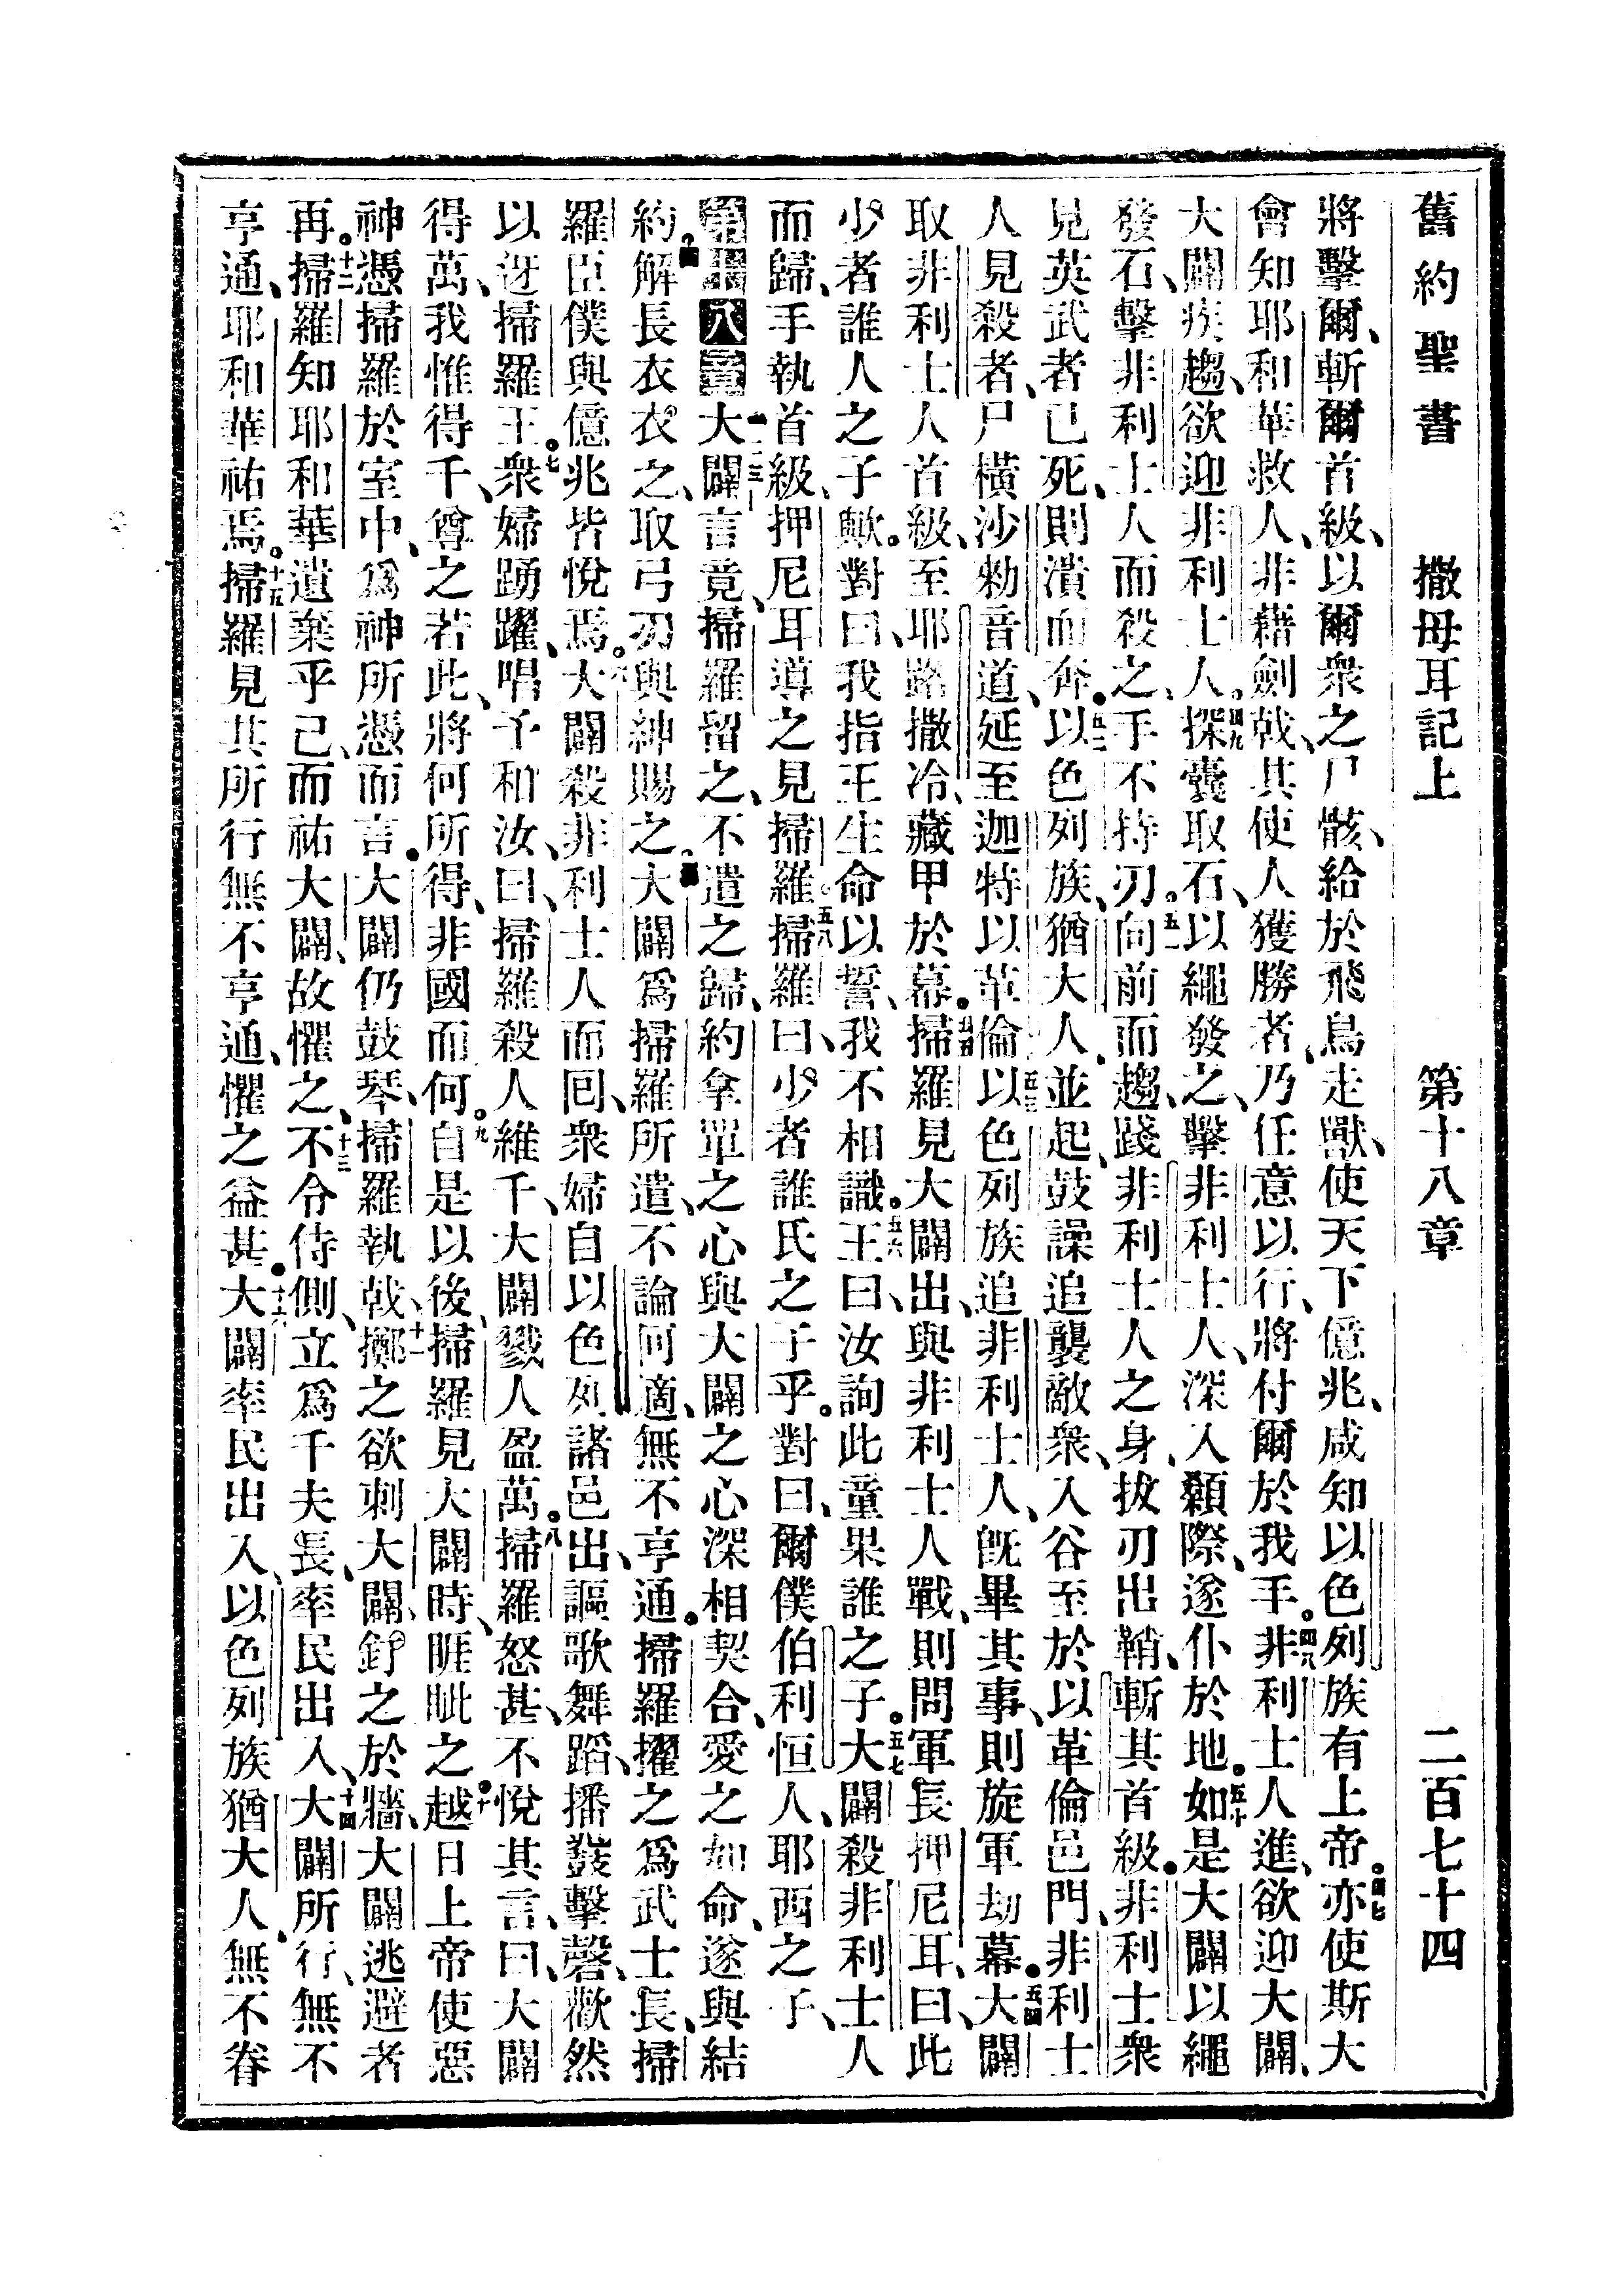 舊約聖書 撒母耳記上 第十八章 二百七十四
將擊爾、斬爾首級、以爾衆之尸骸、給於飛鳥走獸、使天下億兆、咸知以色列族有上帝。四七亦使斯大
會知耶和華救人、非藉劍戟、其使人獲勝者、乃任意以行、將付爾於我手。四八非利士人進、欲迎大闢、
大闢疾趨、欲迎非利士人。四九探囊取石、以繩發之、擊非利士人、深入顙際、遂仆於地。五十如是大闢以繩
發石、擊非利士人而殺之、手不持刃。五一向前而趨、踐非利士人之身、拔刃出鞘、斬其首級。非利士衆
見英武者已死、則潰而奔。五二以色列族、猶大人、並起、鼓譟追襲敵衆、入谷至於以革倫邑門、非利士
人見殺者、尸橫沙勑音道、延至迦特以革倫。五三以色列族追非利士人、旣畢其事、則旋軍劫幕。五四大闢
取非利士人首級、至耶路撒冷、藏甲於幕。五五掃羅見大闢出、與非利士人戰、則問軍長押尼耳、曰、此
少者誰人之子歟。對曰、我指王生命以誓、我不相識。五六王曰、汝詢此童果誰之子。五七大闢殺非利士人
而歸、手執首級、押尼耳導之見掃羅。五八掃羅曰、少者誰氏之子乎。對曰、爾僕伯利恒人、耶西之子、
第十八章 一大闢言竟、掃羅留之、二不遣之歸、三約拿單之心與大闢之心深相契合、愛之如命、遂與結
約。四解長衣衣之、取弓刃與紳賜之。五大闢爲掃羅所遣、不論何適、無不亨通。掃羅擢之爲武士長、掃
羅臣僕與億兆皆悅焉。六大闢殺非利士人而回、衆婦自以色列諸邑出、謳歌舞蹈、播鼗擊磬、歡然
以迓掃羅王。七衆婦踴躍、唱予和汝、曰、掃羅殺人維千、大闢戮人盈萬。八掃羅怒甚、不悅其言、曰、大闢
得萬、我惟得千、尊之若此、將何所得、非國而何。九自是以後、掃羅見大闢時、睚眦之。十越日上帝使惡
神憑掃羅於室中、爲神所憑而言。大闢仍鼓琴、掃羅執戟、十一擲之欲刺大闢、釘之於牆、大闢逃避者
再。十二掃羅知耶和華遺棄乎己、而祐大闢、故懼之、十三不令侍側、立爲千夫長、率民出入、十四大闢所行、無不
亨通、耶和華祐焉。十五掃羅見其所行無不亨通、懼之益甚。十六大闢率民出入、以色列族猶大人、無不眷